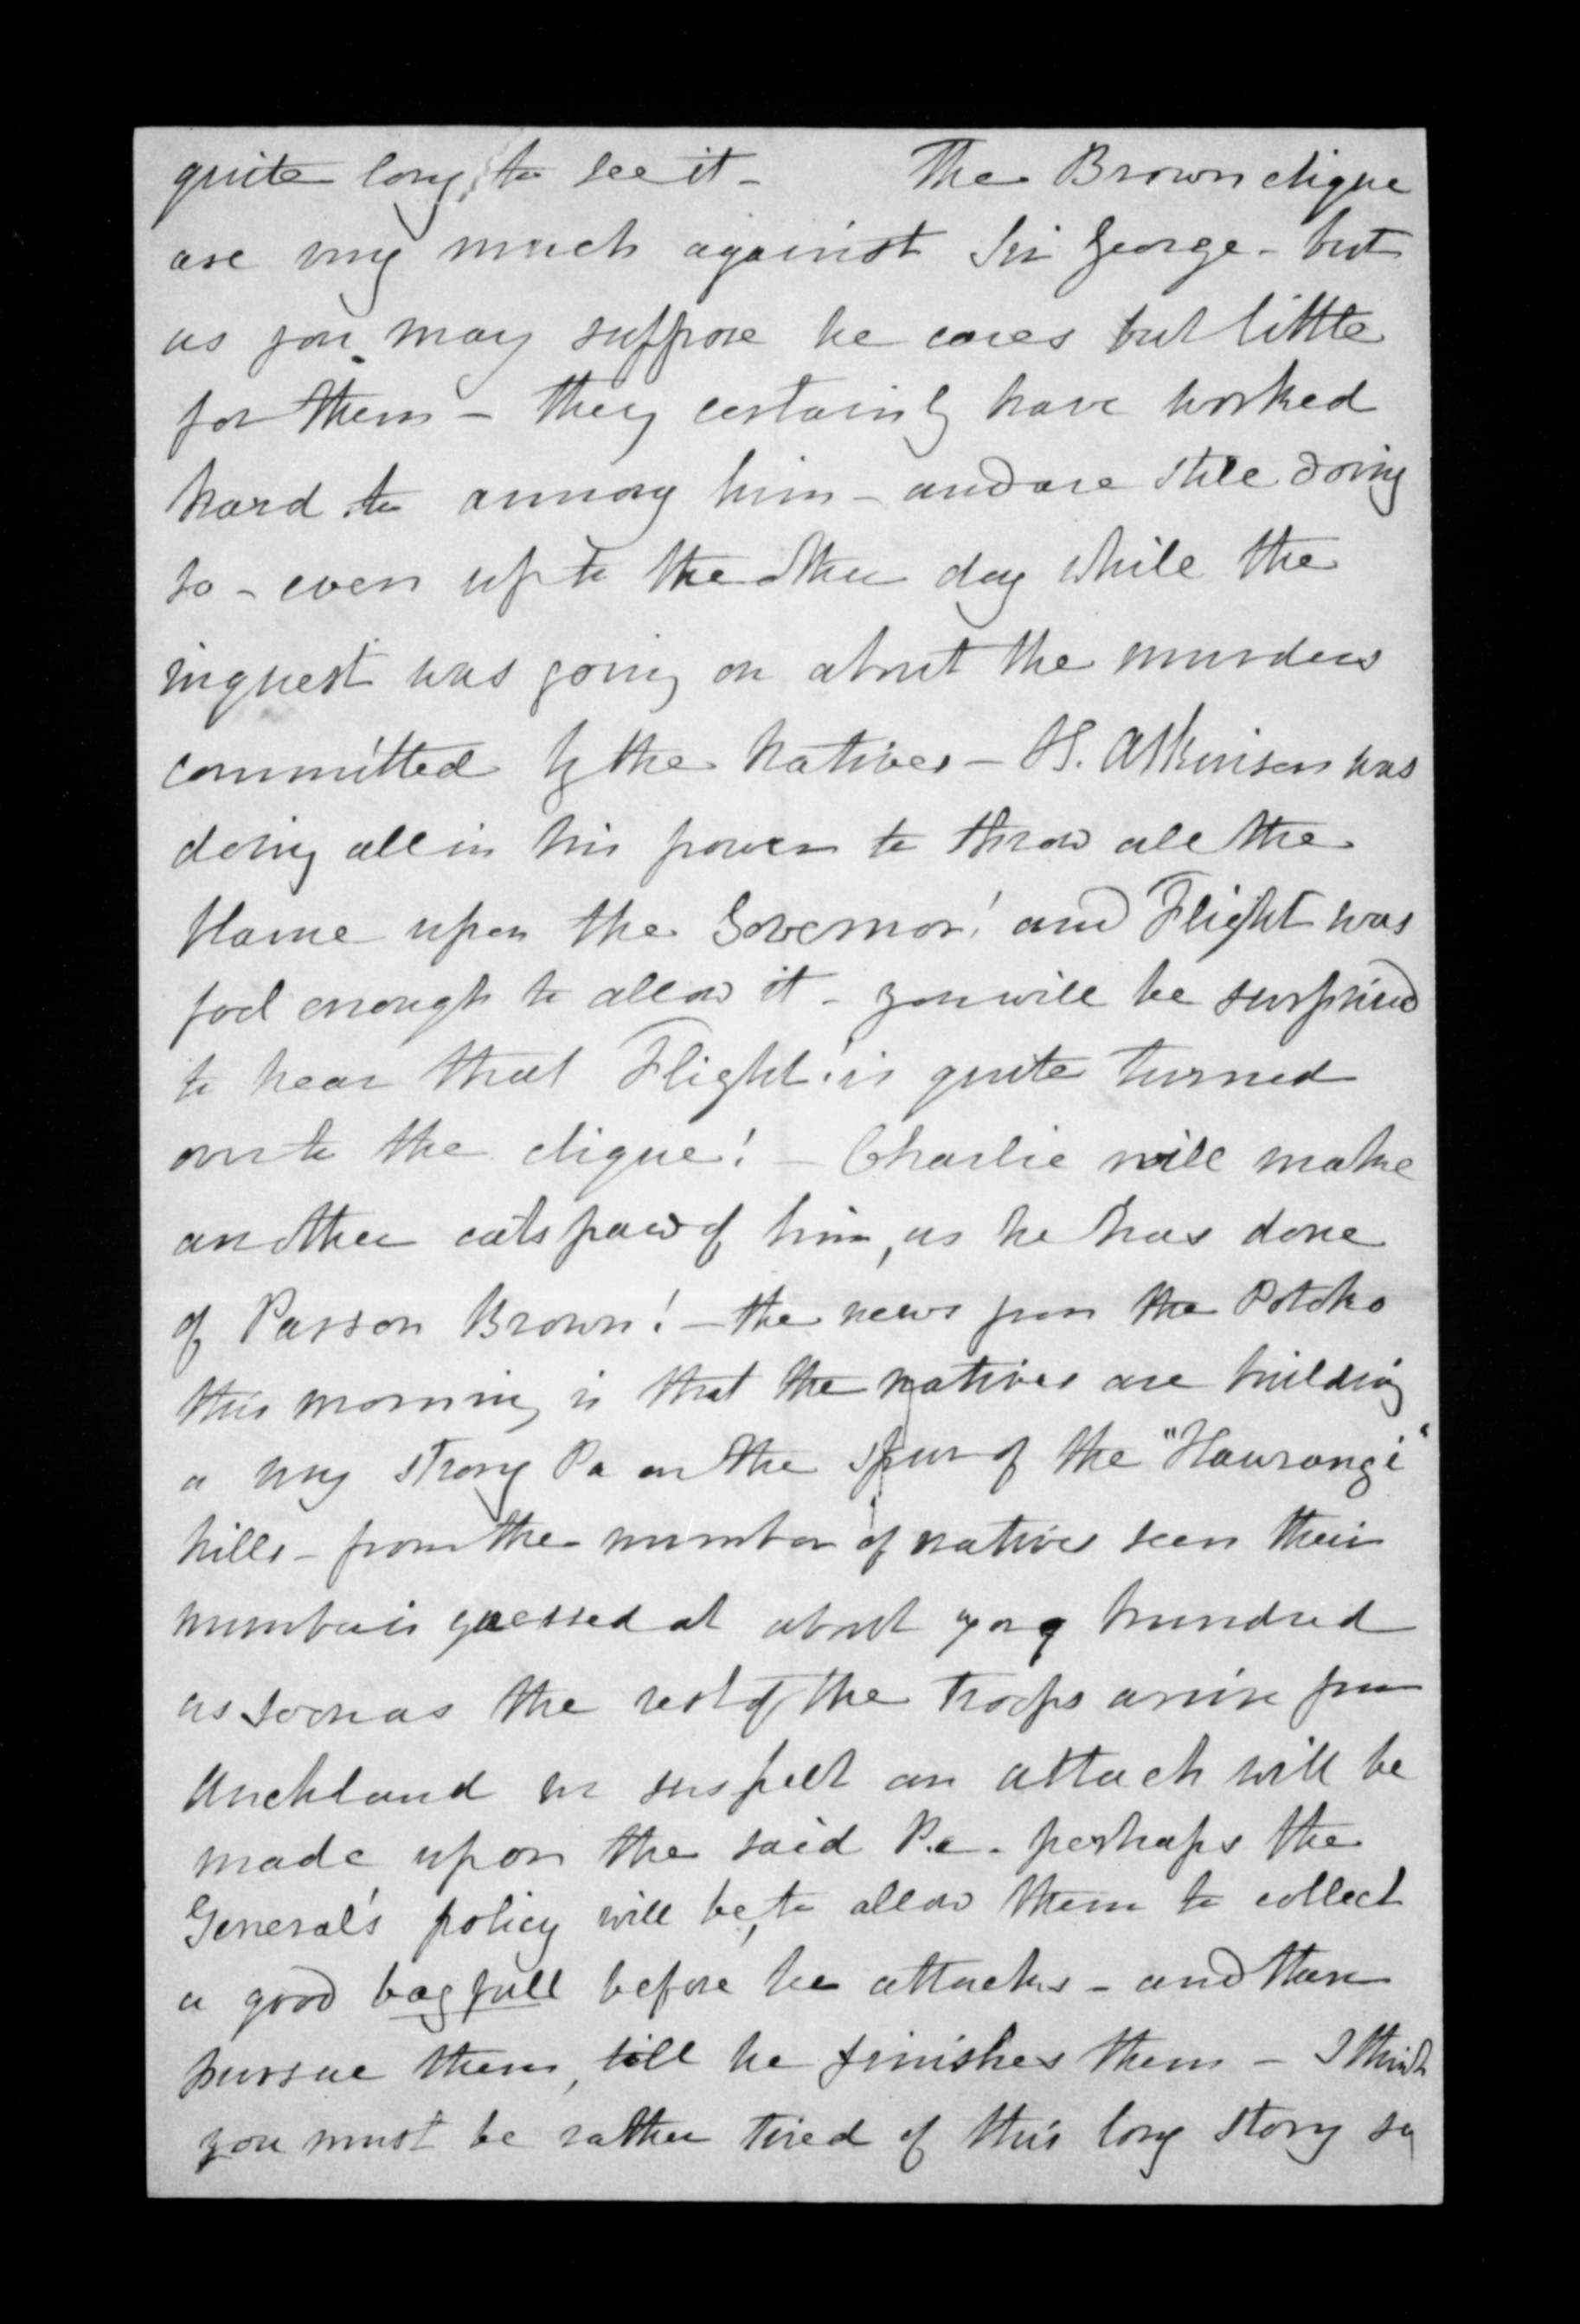 quite long, to see it - The Brown clique
are very much against Sir George - but
as you may suppose he cares but little
for them - they certainly have worked
hard to annoy him - and are still doing
so - even up to the other day while the
inquest was going on about the murders
committed by the Natives - H. Atkinson was
doing all in his power to throw all the
blame upon the Governor! and Flight was
fool enough to allow it - you will be surprised
to hear that Flight is quite turned
over to the clique! - Charlie will make
another cats paw of him, as he has done
of Parson Brown! - the news from the Potoko
this morning is that the natives are building
a very strong Pa on the spur of the "Haurangi"
hills - from the number of natives seen their
number is guessed at about hundred
as soon as the rest of the troops arrive from
Auckland we suspect an attack will be
made upon the said Pa - perhaps the
General's policy will be, to allow them to collect
a good bag full before he attacks - and then
pursue them, till he finishes them - I think
you must be rather tired of this long story so